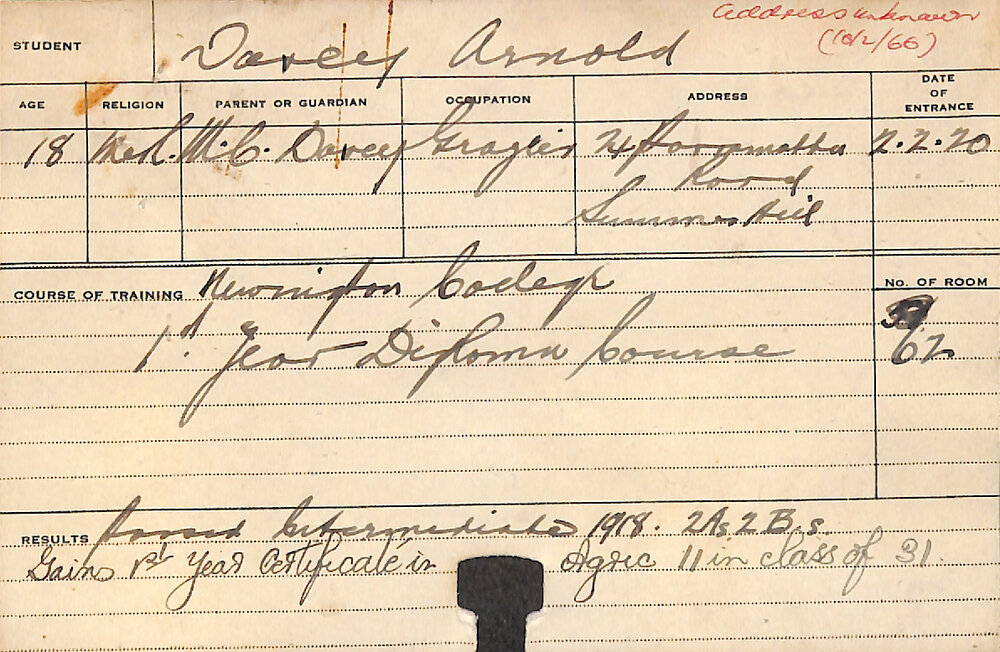 address unknown
(10/2/66)
STUDENT Davey Arnold
AGE RELIGION PARENT OR GUARDIAN OCCUPATION ADDRESS DATE OF ENTRANCE
18 M.C. Davey Grazier 24 Parramatta 2.2.20
Road
Summer Hill
COURSE OF TRAINING Newington College No. OF ROOM
1st Year Diploma Course 62
RESULTS Passed Intermediate 1918. 2As 2Bs
Gains 1st Year Certificate in Agric 11 in class of 31.